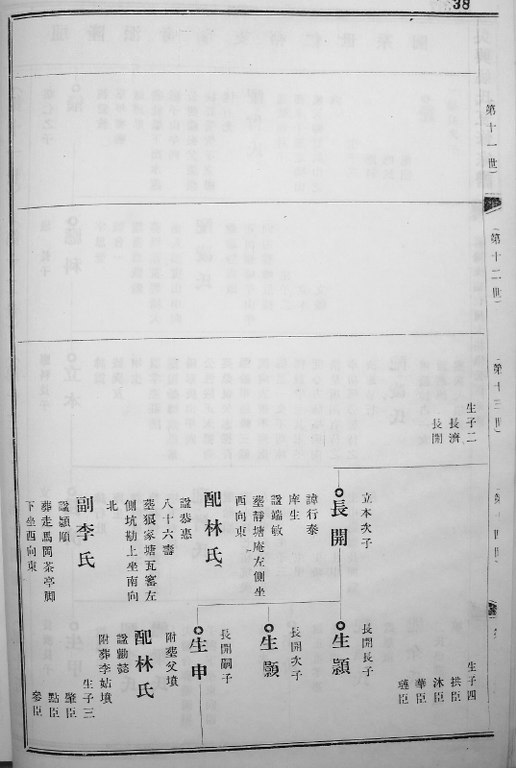 38
第十一世
第十二世
第十三世
生子二
長濟
長開
立本次子
長開
諱行泰
庠生
諡端敏
墓靜塘庵左側坐
西向東
配林氏
諡恭惠
八十六壽
墓狐家塘瓦窰左
側坑勘上坐南向
北
副李氏
諡頴順
葬走馬岡茶亭脚
下坐西向東
生子四
拱臣
沐臣
華臣
璉臣
長開長子
生潁
長開次子
生顥
長開嗣子
生申
附墓父墳
配林氏
諡勤懿
附葬李姑墳
生子三
肇臣
點臣
參臣